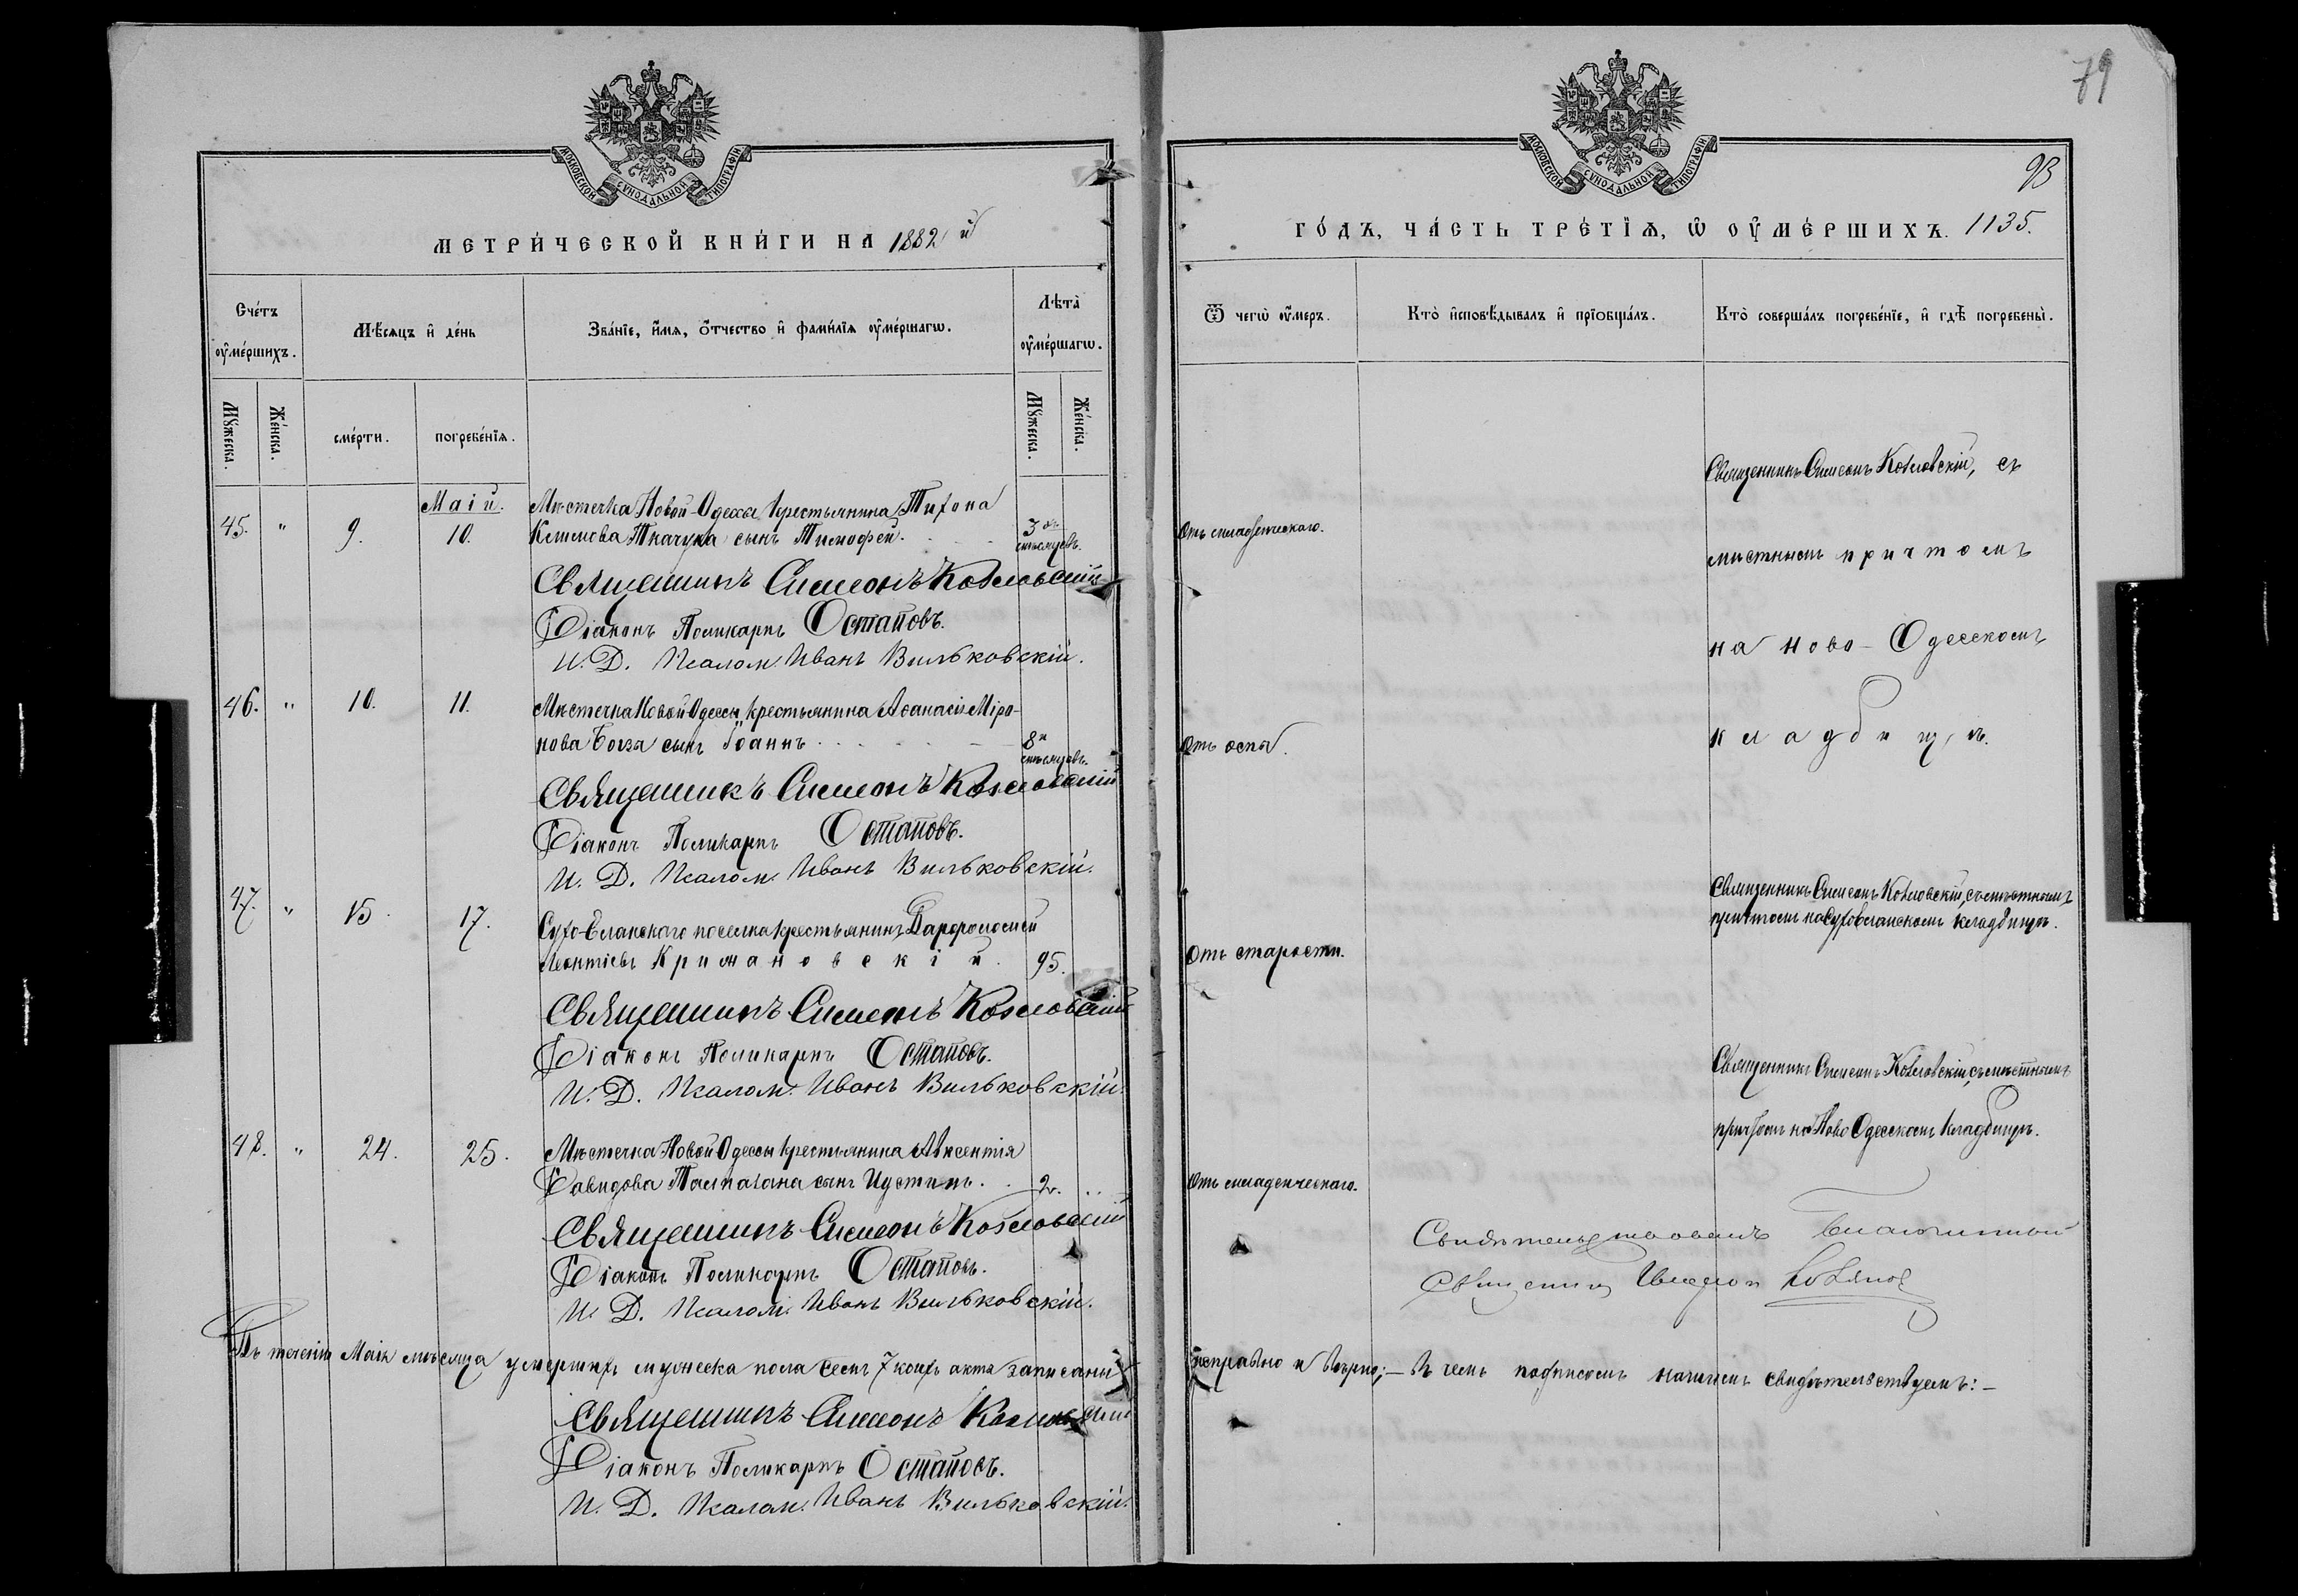 79
МОСКОВСКОЙ СѴНОДАЛЬНОЙ ТИПОГРАФІИ
МЕТРИ́ЧЕСКОЙ КНИ́ГИ НА 1882й
Сче́тъ ᲂу҆ме́ршихъ.
Мѣ́сяцъ и҆ де́нь
Зва́нїе, и҆́мя, ѻ҆́тчество и҆ фами́лїя ᲂу҆ме́ршагѡ.
Лѣта̀ ᲂу҆ме́ршагѡ.
Мꙋ́жеска.
Же́нска.
сме́рти.
погребе́нїя.
Мꙋ́жеска.
Же́нска.
Маій.
45. " 9. 10.
Мѣстечка Новой-Одессы крестьянина Тихона
Ткачука сынъ Тимофей.
3хъ мѣсяцевъ.
Священникъ Симеонъ Козловскій
Діаконъ Поликарпъ Остаповъ.
И. Д. Псалом. Иванъ Вильковскій.
46. " 10. 11.
Мѣстечка Новой Одессы крестьянина Аѳанасія Миро-
нова сынъ Іоаннъ
8и мѣсяцевъ.
Священникъ Симеонъ Козловскій
Діаконъ Поликарпъ Остаповъ.
И. Д. Псалом. Иванъ Вильковскій.
47. " 15. 17.
Сухо-Еланскаго поселка крестьянинъ
Леонтіевъ Кримановскій. 95.
Священникъ Симеонъ Козловскій
Діаконъ Поликарпъ Остаповъ.
И. Д. Псалом. Иванъ Вильковскій.
48. " 24. 25.
Мѣстечка Новой Одессы крестьянина Авксентія
Давидова сынъ Іустинъ. 2.
Священникъ Симеонъ Козловскій
Діаконъ Поликарпъ Остаповъ.
И. Д. Псалом. Иванъ Вильковскій.
Въ теченіи Маія мѣсяца умершихъ мужеска пола семь 7 коихъ акта записаны
Священникъ Симеонъ Козловскій
Діаконъ Поликарпъ Остаповъ.
И. Д. Псалом. Иванъ Вильковскій.
МОСКОВСКОЙ СѴНОДАЛЬНОЙ ТИПОГРАФІИ
93
ГО́ДЪ, ЧА́СТЬ ТРЕ́ТЇЯ, Ѡ҆ ОУ҆МЕ́РШИХЪ. 1135.
Ѿ чегѡ̀ ᲂу҆́меръ.
Кто̀ и҆сповѣ́дывалъ и҆ прїѻбща́лъ.
Кто̀ соверша́лъ погребе́нїе, и҆ гдѣ̀ погребены̀.
Отъ младенческаго.
Священникъ Симеонъ Козловскій, съ
мѣстнымъ причтомъ
на Ново-Одесскомъ
кладбищѣ.
Отъ оспы.
Отъ старости.
Священникъ Симеонъ Козловскій, съ мѣстнымъ
причтомъ на Сухоеланскомъ кладбищѣ.
Отъ младенческаго.
Священникъ Симеонъ Козловскій, съ мѣстнымъ
причтомъ на Ново Одесскомъ кладбищѣ.
Свидѣтельствовалъ Благочинный
Священникъ
исправно и вѣрно; – въ чемъ подписомъ нашимъ свидѣтельствуемъ: –